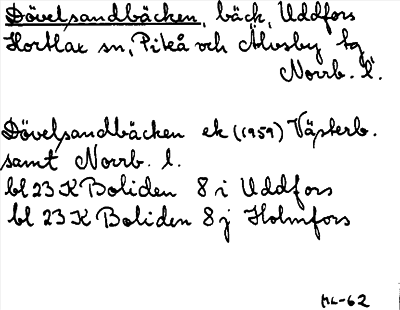 Dövelsandbäcken, bäck, Uddfors
Hortlax sn, Piteå och Älvsby tg
Norrb. l.
Dövelsandbäcken ek (1959) Västerb.
samt Norrb. l.
bl 23 K Boliden 8 i Uddfors
bl 23 K Boliden 8 j Holmfors
ML-62